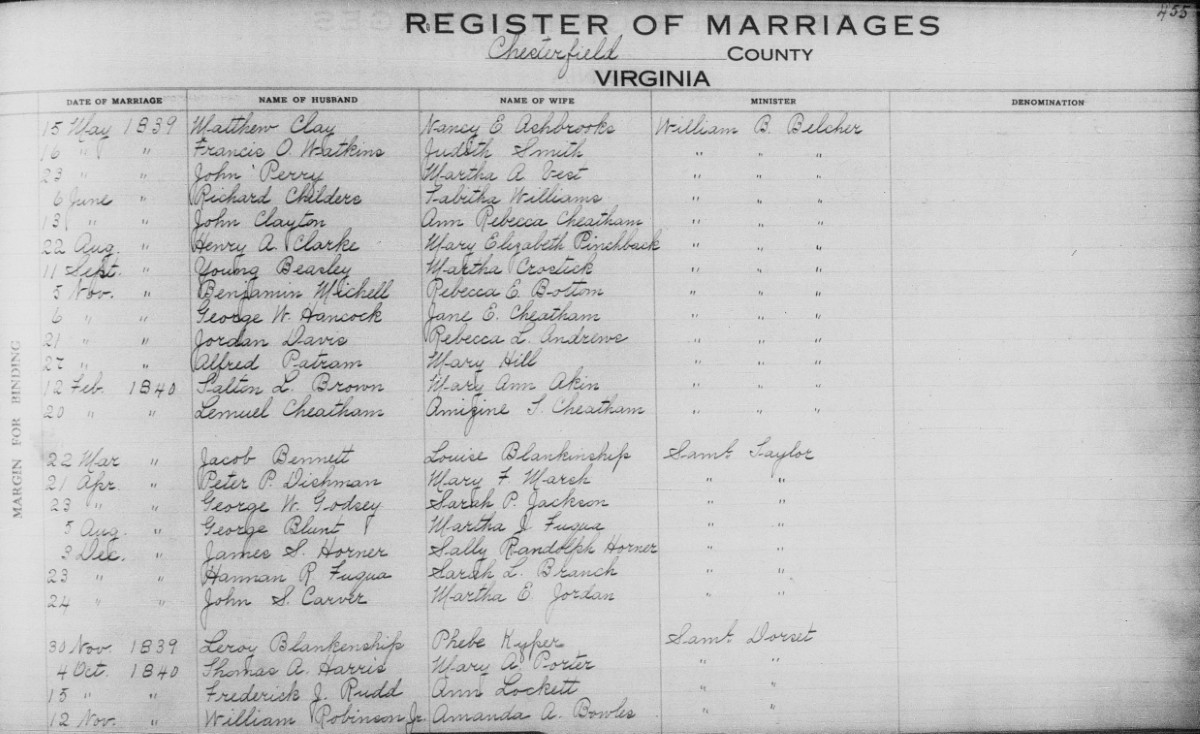 455
REGISTER OF MARRIAGES
Chesterfield COUNTY
VIRGINIA
DATE OF MARRIAGE NAME OF HUSBAND NAME OF WIFE MINISTER DENOMINATION
15 May 1839 Matthew Clay Nancy E. Ashbrooks William B. Belcher
16 " " Francis O. Watkins Judith Smith " " "
23 " " John Perry Martha A Vest " " "
6 June " Richard Childers Tabitha Williams " " "
13 " " John Clayton Ann Rebecca Cheatham " " "
22 Aug. " Henry A. Clarke Mary Elizabeth Pinchback " " "
11 Sept. " Young Beasley Martha Crostick " " "
5 Nov. " Benjamin Michell Rebecca E. Bottom " " "
6 " " George W. Hancock Jane E. Cheatham " " "
21 " " Jordan Davis Rebecca L. Andrews " " "
27 " " Alfred Patram Mary Hill " " "
12 Feb. 1840 L. Brown Mary Ann Akin " " "
20 " " Lemuel Cheatham Cheatham " " "
22 Mar " Jacob Bennett Louise Blankinship Saml. Taylor
21 Apr. " Peter P. Dishman Mary F Marsh " "
23 " " George W. Godsey Sarah P. Jackson " "
5 Aug. " George Blunt Martha J Fuqua " "
3 Dec. " James S. Horner Sally Randolph Horner " "
23 " " Hannan R. Fuqua Sarah L. Branch " "
24 " " John S. Carver Martha E. Jordan " "
30 Nov. 1839 Leroy Blankenship Phebe Kyper Saml. Dorset
4 Oct. 1840 Thomas A. Harris Mary A. Porter " "
15 " " Frederick J. Rudd Ann Lockett " "
12 Nov. " William Robinson Jr. Amanda A. Bowles " "
MARGIN FOR BINDING